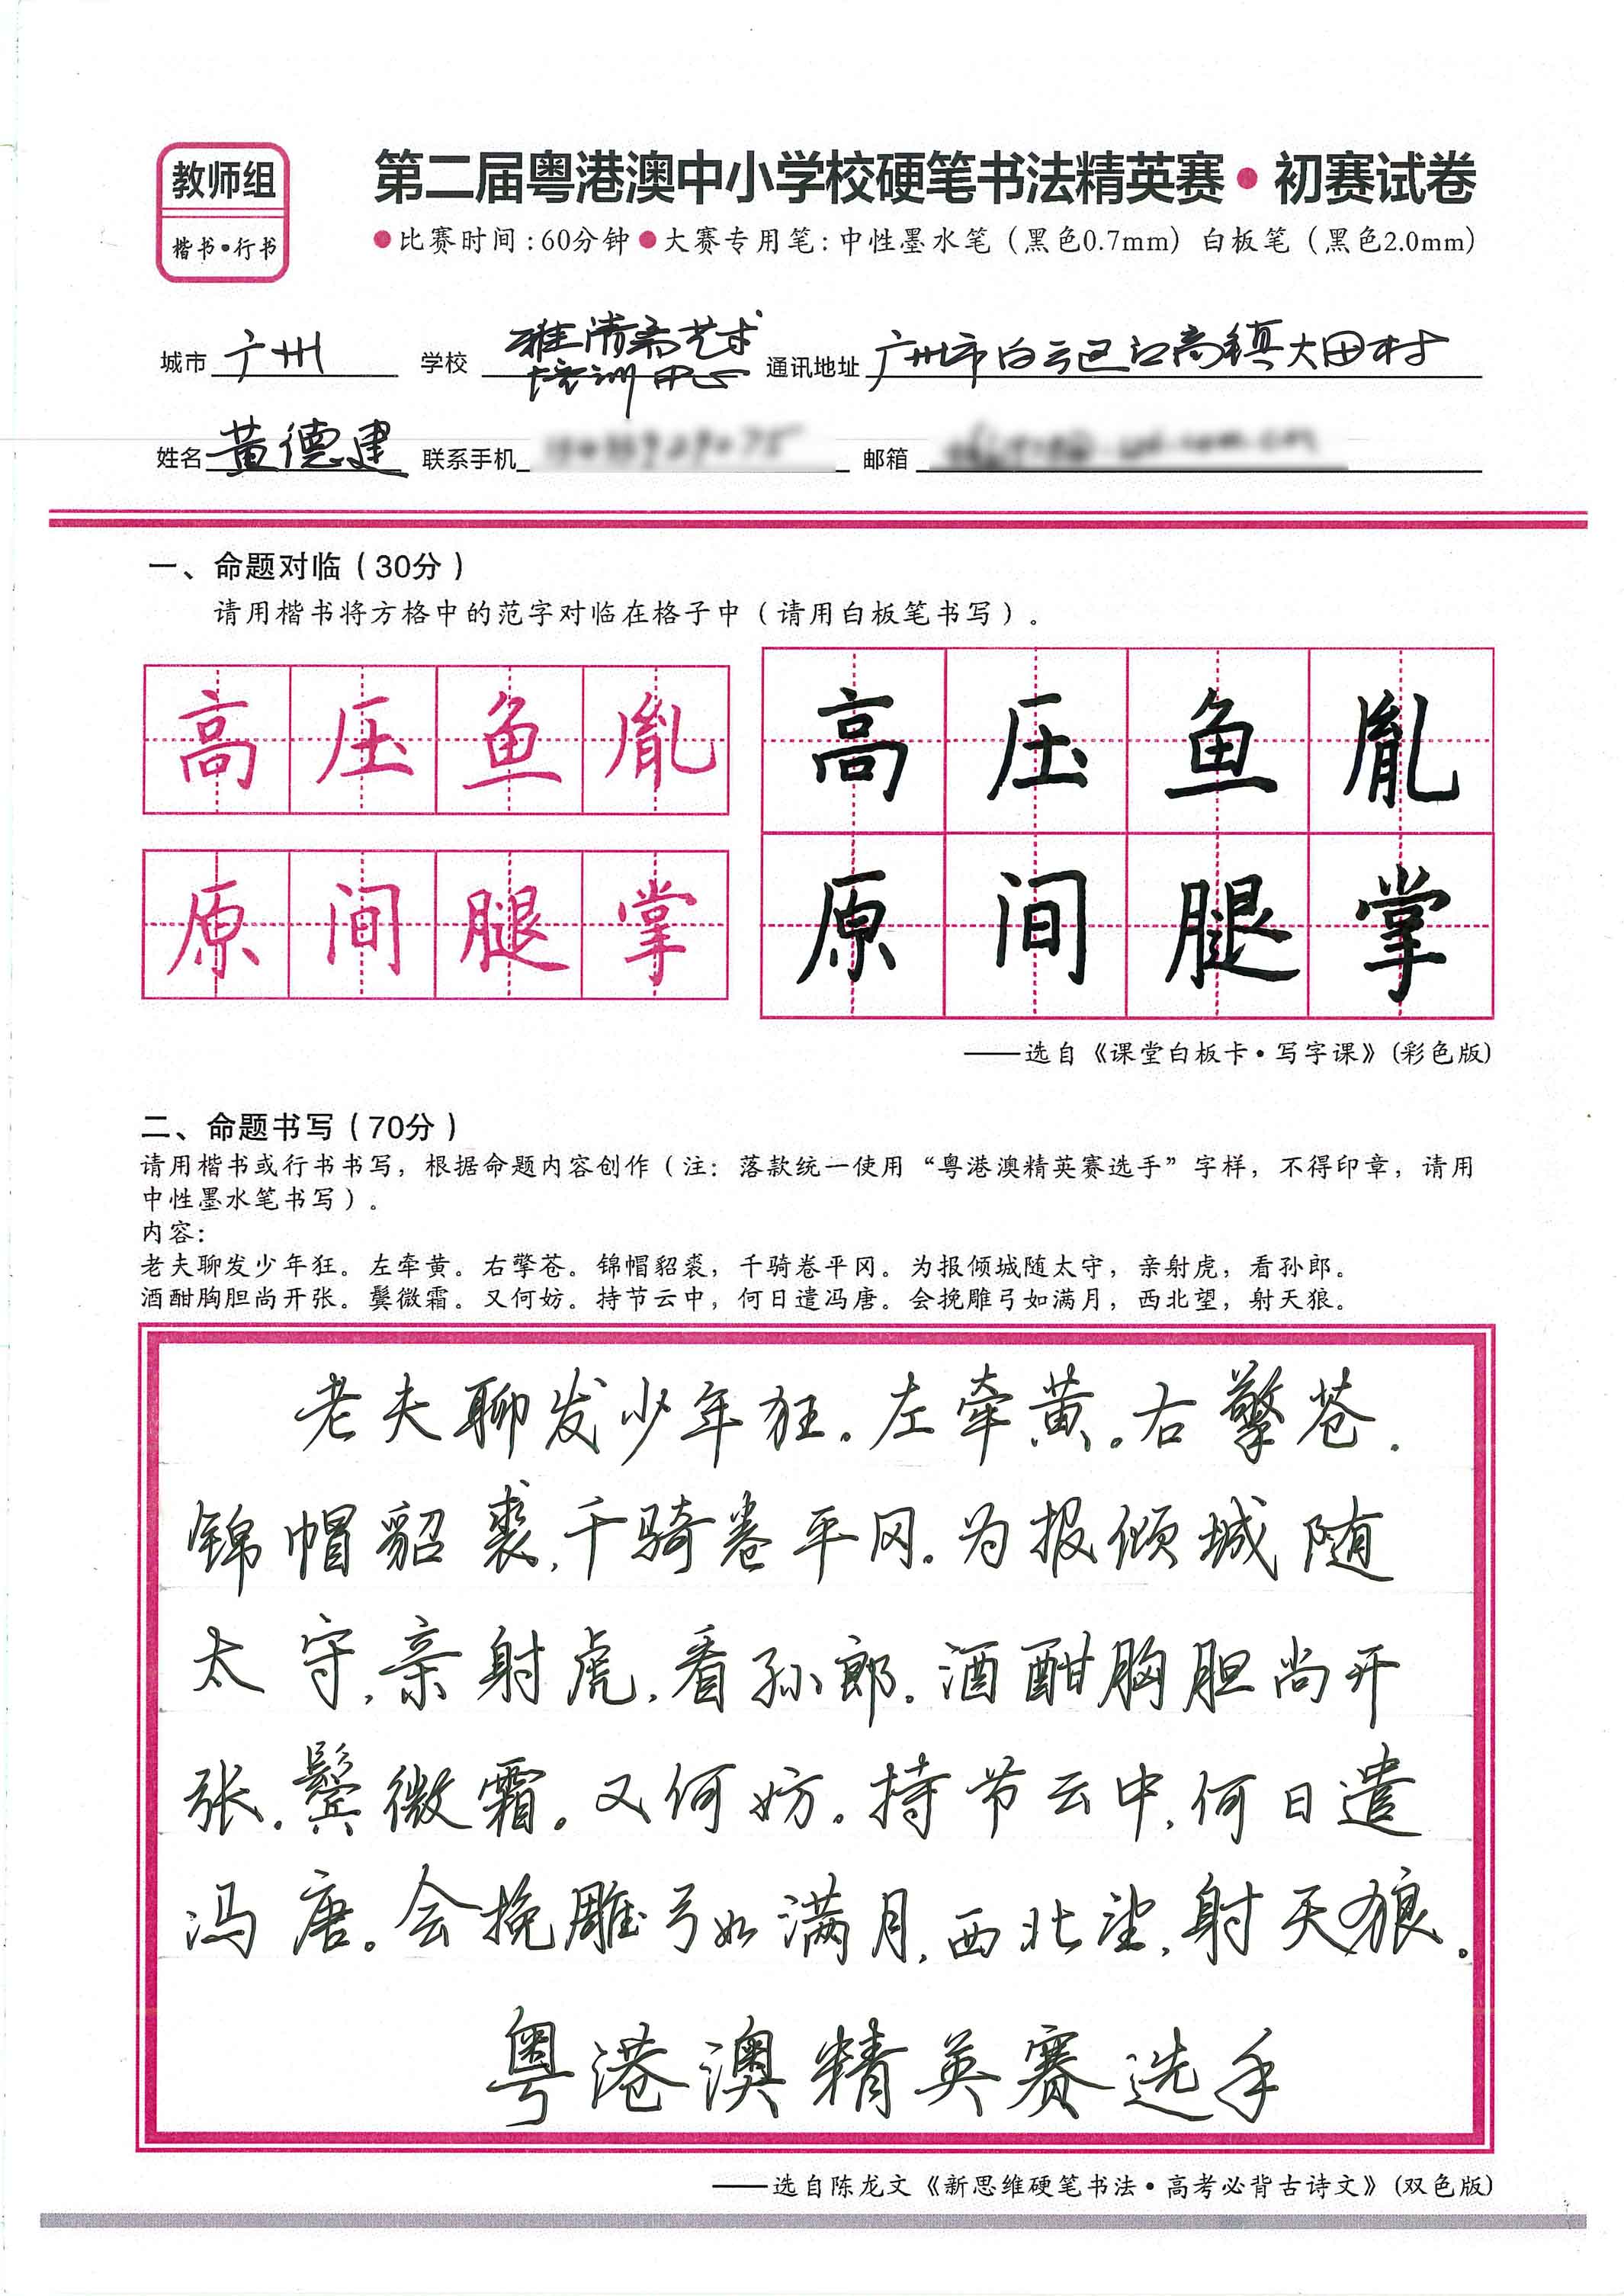 教师组
楷书•行书
第二届粤港澳中小学校硬笔书法精英赛•初赛试卷
•比赛时间:60分钟•大赛专用笔:中性墨水笔（黑色0.7mm）白板笔（黑色2.0mm）
城市 广州 学校 雅清斋艺术培训中心 通讯地址 广州市白云区江高镇大田村
姓名 黄德建 联系手机 邮箱
一、命题对临（30分）
请用楷书将方格中的范字对临在格子中（请用白板笔书写）。
高压鱼胤 高压鱼胤
原间腿掌 原间腿掌
——选自《课堂白板卡•写字课》(彩色版)
二、命题书写（70分）
请用楷书或行书书写，根据命题内容创作（注：落款统一使用“粤港澳精英赛选手”字样，不得印章，请用
中性墨水笔书写）。
内容：
老夫聊发少年狂。左牵黄。右擎苍。锦帽貂裘，千骑卷平冈。为报倾城随太守，亲射虎，看孙郎。
酒酣胸胆尚开张。鬓微霜。又何妨。持节云中，何日遣冯唐。会挽雕弓如满月，西北望，射天狼。
老夫聊发少年狂。左牵黄。右擎苍.
锦帽貂裘,千骑卷平冈。为报倾城随
太守,亲射虎,看孙郎。酒酣胸胆尚开
张。鬓微霜。又何妨。持节云中,何日遣
冯唐。会挽雕弓如满月,西北望,射天狼。
粤港澳精英赛选手
——选自陈龙文《新思维硬笔书法•高考必背古诗文》(双色版)